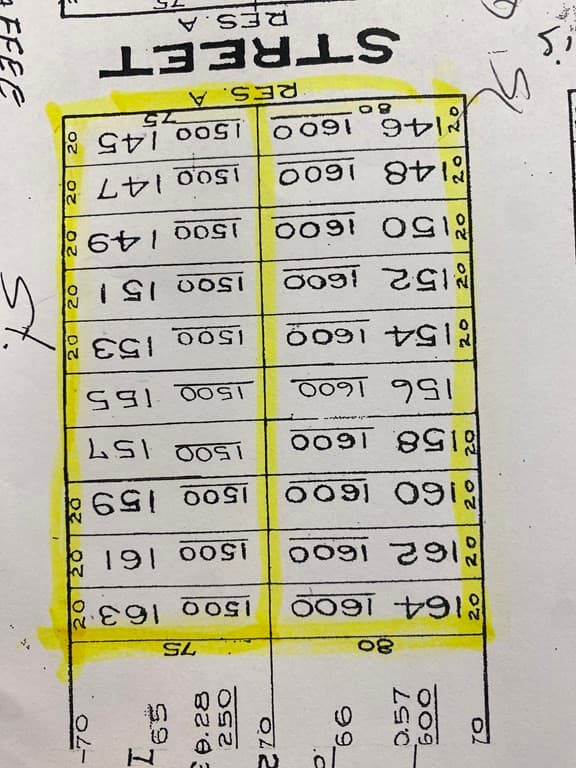 70 600 0.57 66 70 250 65 70
80 75
20 164 1600 1500 163 20
20 162 1600 1500 161 20
20 160 1600 1500 159 20
20 158 1600 1500 157
156 1600 1500 155
20 154 1600 1500 153 20
20 152 1600 1500 151 20
20 150 1600 1500 149 20
20 148 1600 1500 147 20
20 146 1600 1500 145 20
80 75
RES. A
STREET
RES. A
75